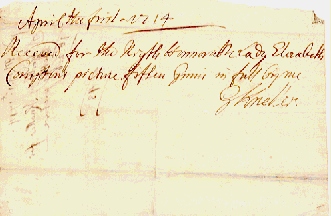 April the first - 1714
Received for the Right Honorable Lady Elizabeth
Comptons picture fiften Ginnis in full by me
G Kneller.